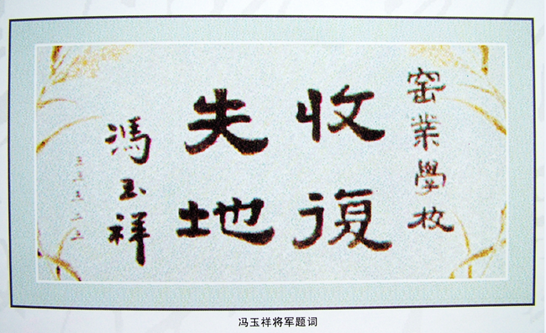 窑業學校
收復
失地
馮玉祥
冯玉祥将军题词